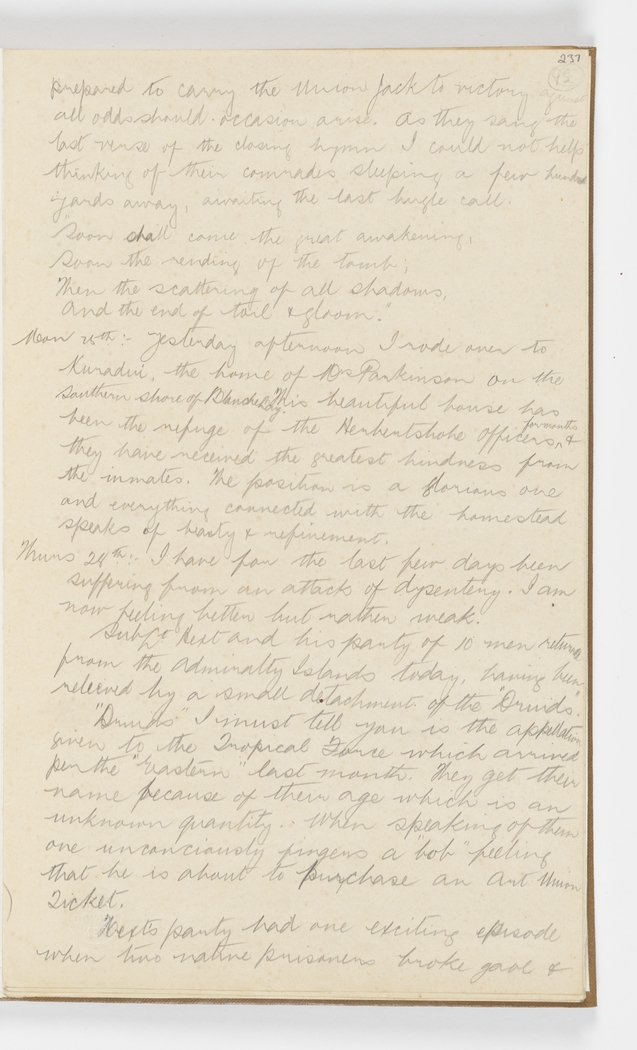 237
93
prepared to carry the Union Jack to victory against
all odds should occasion arise. As they sang the
last verse of the closing hymn I could not help
thinking of their comrades sleeping a few hundred
yards away, awaiting the last bugle call.
"Soon shall come the great awakening,
Soon the rending of the tomb;
Then the scattering of all shadows,
And the end of toil & gloom."
Mon 25th:- Yesterday afternoon I rode over to
Kuradui, the home of Mrs Parkinson on the
Southern shore of Blanche Bay. This beautiful house has
been the refuge of the Herbertshohe officers, for months &
they have received the greatest kindness from
the inmates. The position is a glorious one
and everything connected with the homestead
speaks of beauty & refinement.
Thurs 28th:- I have for the last few days been
suffering from an attack of dysentery. I am
now feeling better but rather weak.
Sub Lt Hext and his party of 10 men returned
from the Admiralty Islands today, having been
releived by a small detachment of the "Druids".
"Druids" I must tell you is the appellation
given to the Tropical Force which arrived
per the "Eastern" last month. They get their
name because of their age which is an
unknown quantity. When speaking of them
one unconciously fingers a "bob" feeling
that he is about to purchase an Art Union
Ticket.
Hext's party had one exciting episode
when two native prisoners broke gaol &